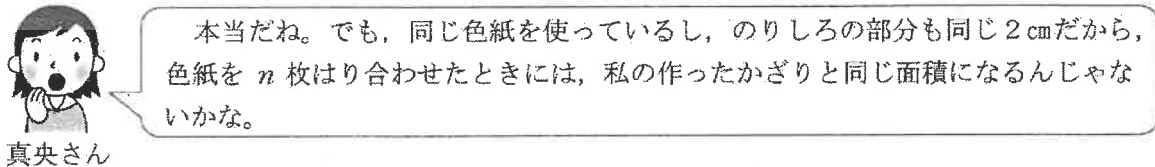 本当だね。でも，同じ色紙を使っているし，のりしろの部分も同じ2㎝だから，
色紙を n 枚はり合わせたときには，私の作ったかざりと同じ面積になるんじゃな
いかな。
真央さん